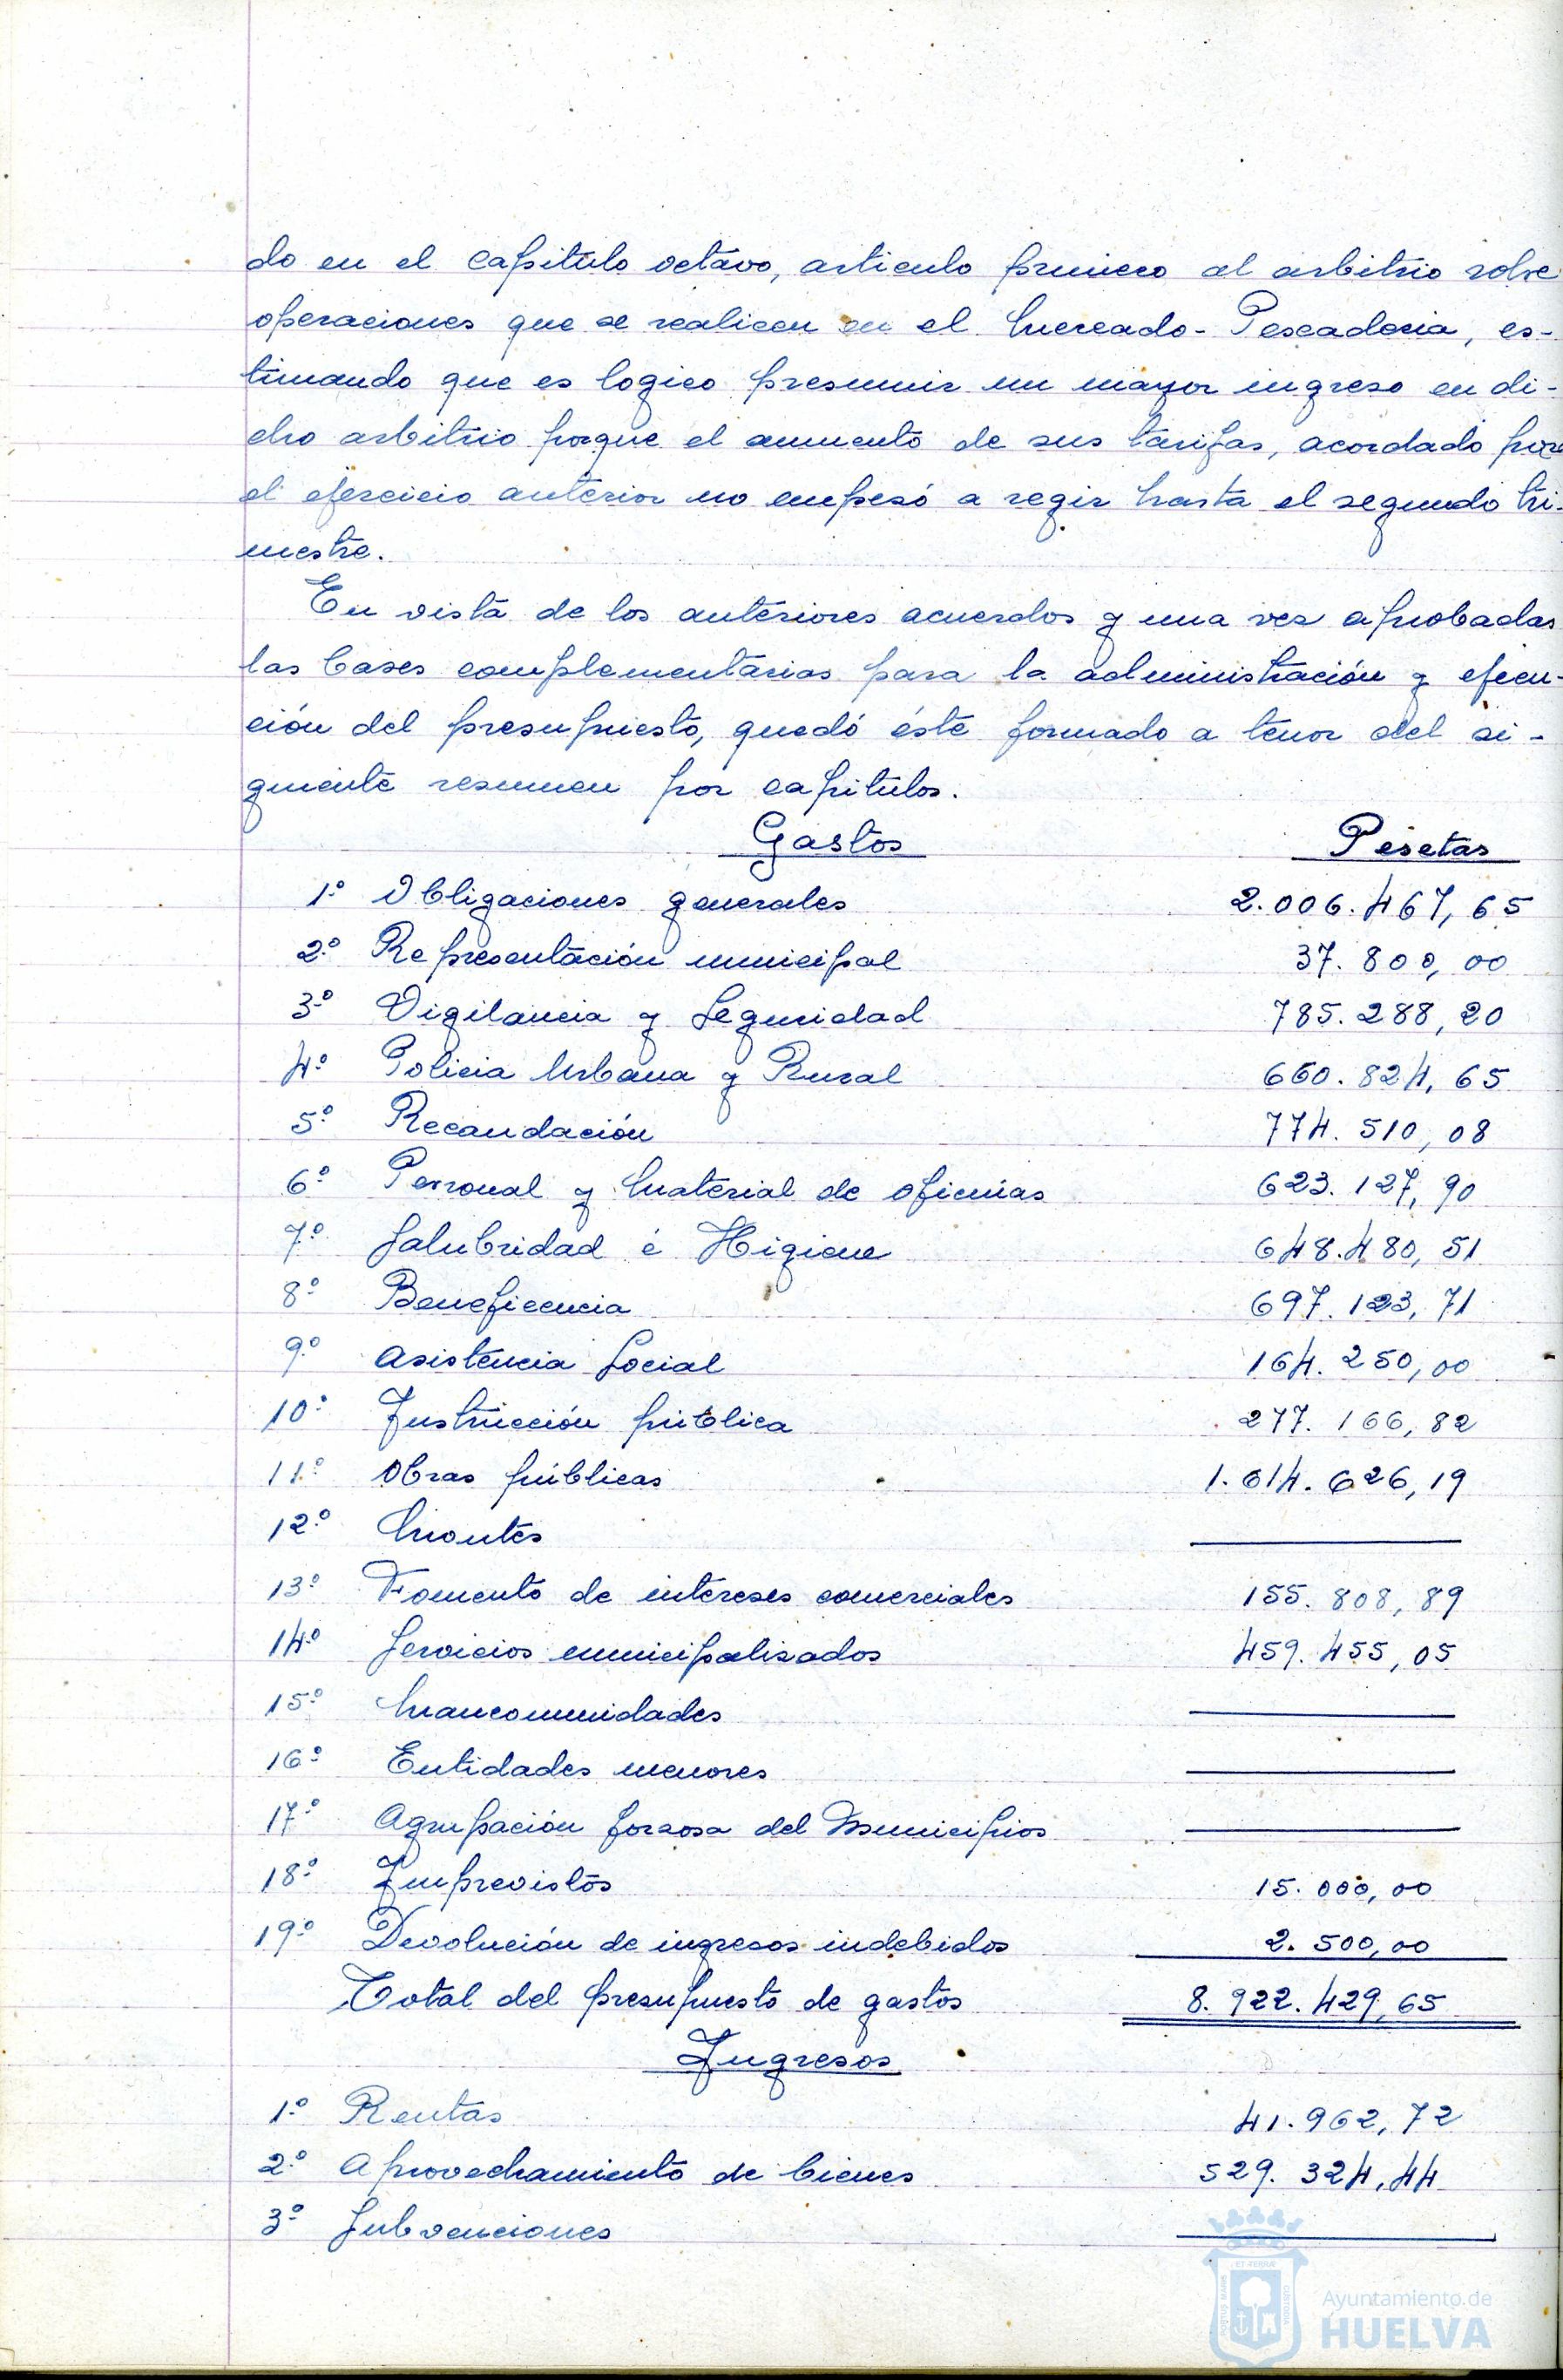 do en el capitulo octavo, articulo primero al arbitrio sobre
operaciones que se realicen en el Mercado-Pescaderia, es-
timando que es logico presumir un mayor ingreso en di-
cho arbitrio porque el aumento de sus tarifas, acordado para
el ejercicio anterior no empesó a regir hasta el segundo tri-
mestre.
En vista de los anteriores acuerdos y una vez aprobadas
las bases complementarias para la administración y ejecu-
ción del presupuesto, quedó éste formado a tenor del si-
guiente resumen por capitulos.
Gastos Pesetas
1º Obligaciones generales 2.006.467,65
2º Representación municipal 37.800,00
3º Vigilancia y Seguridad 785.288,20
4º Policia Urbana y Rural 660.824,65
5º Recaudación 774.510,08
6º Personal y Material de oficinas 623.127,90
7º Salubridad é Higiene 648.480,51
8º Beneficencia 697.123,71
9º Asistencia Social 164.250,00
10º Instrucción pública 277.166,82
11º Obras públicas 1.614.626,19
12º Montes ———
13º Fomento de intereses comerciales 155.808,89
14º Servicios municipalizados 459.455,05
15º Mancomunidades ———
16º Entidades menores ———
17º Agrupación forzosa del Municipios ———
18º Imprevistos 15.000,00
19º Devolución de ingresos indebidos 2.500,00
Total del presupuesto de gastos 8.922.429,65
Ingresos
1º Rentas 41.962,72
2º Aprovechamiento de bienes 529.324,44
3º Subvenciones ———
Ayuntamiento de
HUELVA